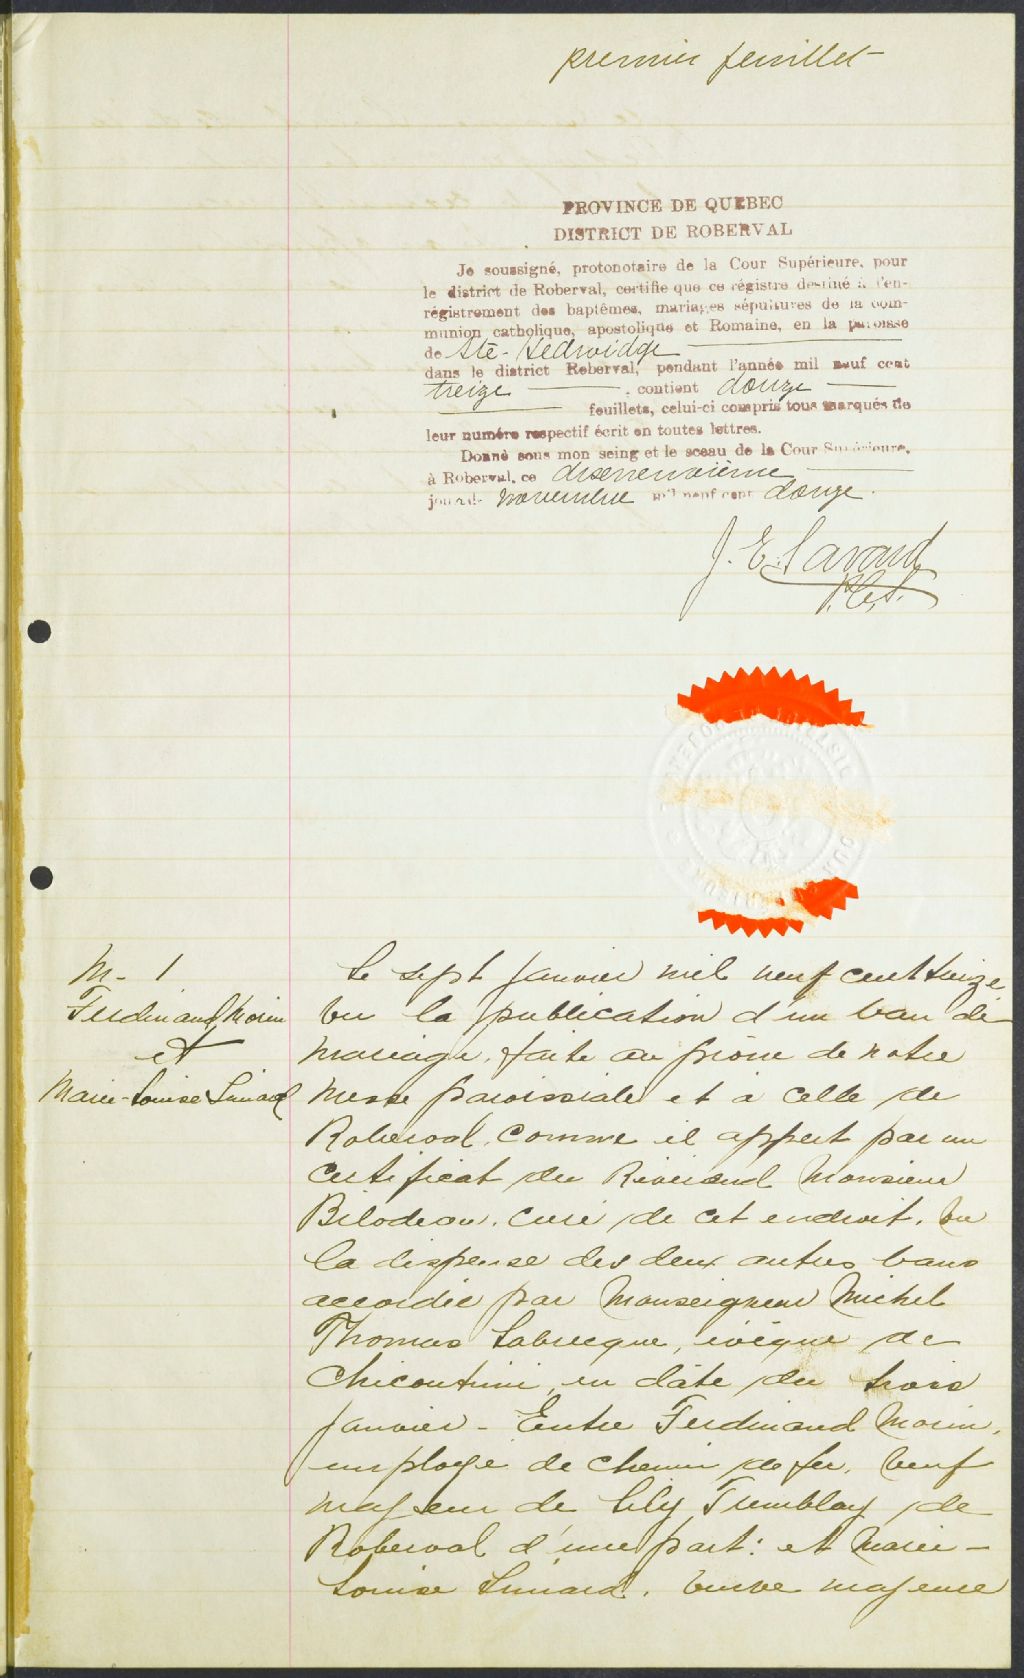 premier feuillet
PROVINCE DE QUEBEC
DISTRICT DE ROBERVAL
Je soussigné, protonotaire de la Cour Supérieure, pour
le district de Roberval, certifie que ce régistre destiné à l'en-
régistrement des baptêmes, mariages sépultures de la com-
munion catholique, apostolique et Romaine, en la paroisse
de Ste-Hedwidge
dans le district Roberval, pendant l'année mil neuf cent
treize, contient douze
feuillets, celui-ci compris tous marqués de
leur numéro respectif écrit en toutes lettres.
Donné sous mon seing et le sceau de la Cour Supérieure,
à Roberval, ce dixneuvième
jour de novembre mil neuf cent douze.
J. E. Savard
P.C.S.
M. 1
Ferdinand Morin
et
Marie-Louise Simard
Le sept janvier mil neuf cent treize
vu la publication d'un ban de
mariage, faite au prône de notre
messe paroissiale et à celle de
Roberval, comme il appert par un
certificat du Révérend Monsieur
Bilodeau, curé de cet endroit, vu
la dispense des deux autres bans
accordée par Monseigneur Michel
Thomas Labrecque, évêque de
Chicoutimi, en date du trois
janvier - Entre Ferdinand Morin,
employé de chemin de fer, veuf
majeur de Lily Tremblay, de
Roberval d'une part: et Marie-
Louise Simard, veuve majeure